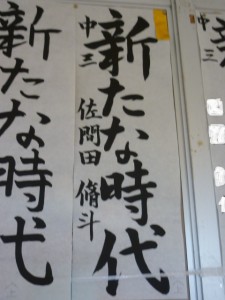 新たな時代
中三 佐間田 脩斗
新たな時代
中三